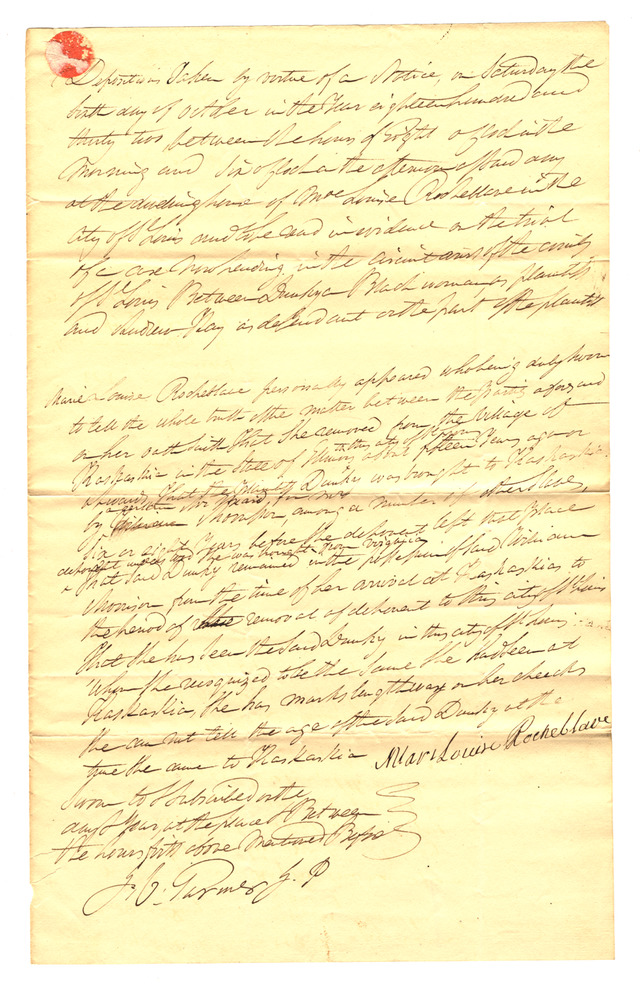 Depositions Taken by virtue of a Notice, on Saturday the
sixth day of October in the Year eighteen hundred and
thirty two between the hours of Eight o clock in the
morning and Six o clock in the afternoon of said day
at the dwelling house of Mme Louise Rocheblave in the
City of St Louis and to be read in evidence on the trial
of a case now pending in the circuit court of the county
of St Louis Between Dunky a Black woman as plaintiff
and Andrew Hay as defendant on the part of the plaintiff
Marie Louise Rocheblave personally appeared who being duly sworn
to tell the whole truth of the matter between the parties aforesaid
on her oath saith That she removed from the Village of
Kaskaskia in the State of Illinois to this city of St Louis about fifteen Years ago or
upwards, That the Dunky was brought to Kaskaskia
by Morrison, among a number of other slaves,
six or eight Years before the deponent left that place
deponent understood she was brought from Virginia
That said Dunky remained in the possession of said William
Morrison from the time of her arrival at Kaskaskia to
the period of removal of deponent to this city of St Louis
That she has seen the said Dunky in this city of St Louis
whom she recognized to be the same she had seen at
Kaskaskia, she has marks lengthway on her cheeks
she can not tell the age of the said Dunky at the
time she came to Kaskaskia
Marie Louise Rocheblave
Sworn to & subscribed on the
day & Year at the place & Between
the hours first above mentioned Before
J. P